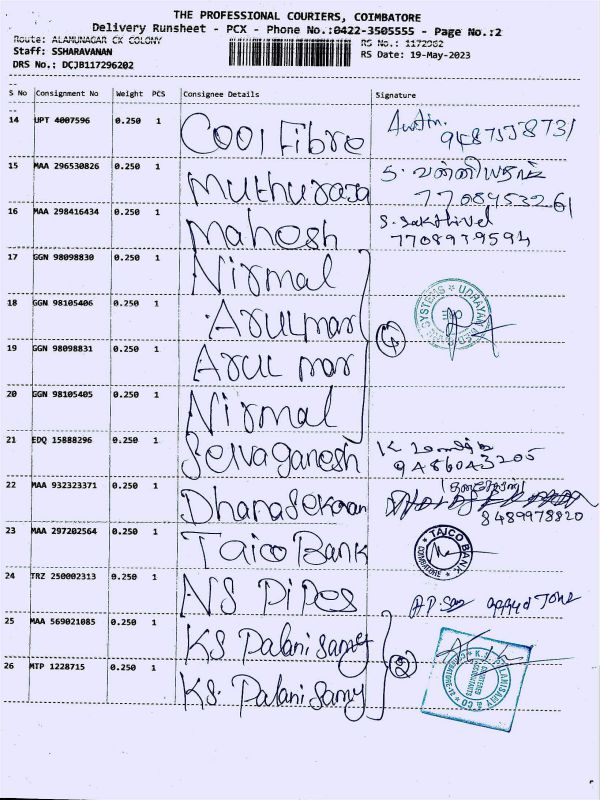 THE PROFESSIONAL COURIERS, COIMBATORE
Delivery Runsheet - PCX - Phone No.:0422-3505555 - Page No.:2
Route: ALAMUNAGAR CK COLONY
RS No.: 1172962
Staff: SSHARAVANAN
RS Date: 19-May-2023
DRS No.: DCJB117296202
S No Consignment No Weight PCS Consignee Details Signature
14 UPT 4007596 0.250 1 Cool Fibre
15 MAA 296530826 0.250 1 Muthuraja
7708953261
16 MAA 298416434 0.250 1 Mahesh S. Sakthivel
7708939594
17 GGN 98098830 0.250 1 Nirmal
18 GGN 98105406 0.250 1 Arulmar
4
SYSTEMS * UDHAYAM
19 GGN 98098831 0.250 1 Arul mar
20 GGN 98105405 0.250 1 Nirmal
21 EDQ 15888296 0.250 1 Selvaganesh
9486043205
22 MAA 932323371 0.250 1 Dhanasekaran
8489978820
23 MAA 297202564 0.250 1 Taico Bank
TAICO BANK
COIMBATORE
24 TRZ 250002313 0.250 1 NS Pipes
25 MAA 569021085 0.250 1 KS Palanisamy
2
K.S. PALANISAMY & CO
CHARTERED
ACCOUNTANTS
26 MTP 1228715 0.250 1 KS. Palanisamy